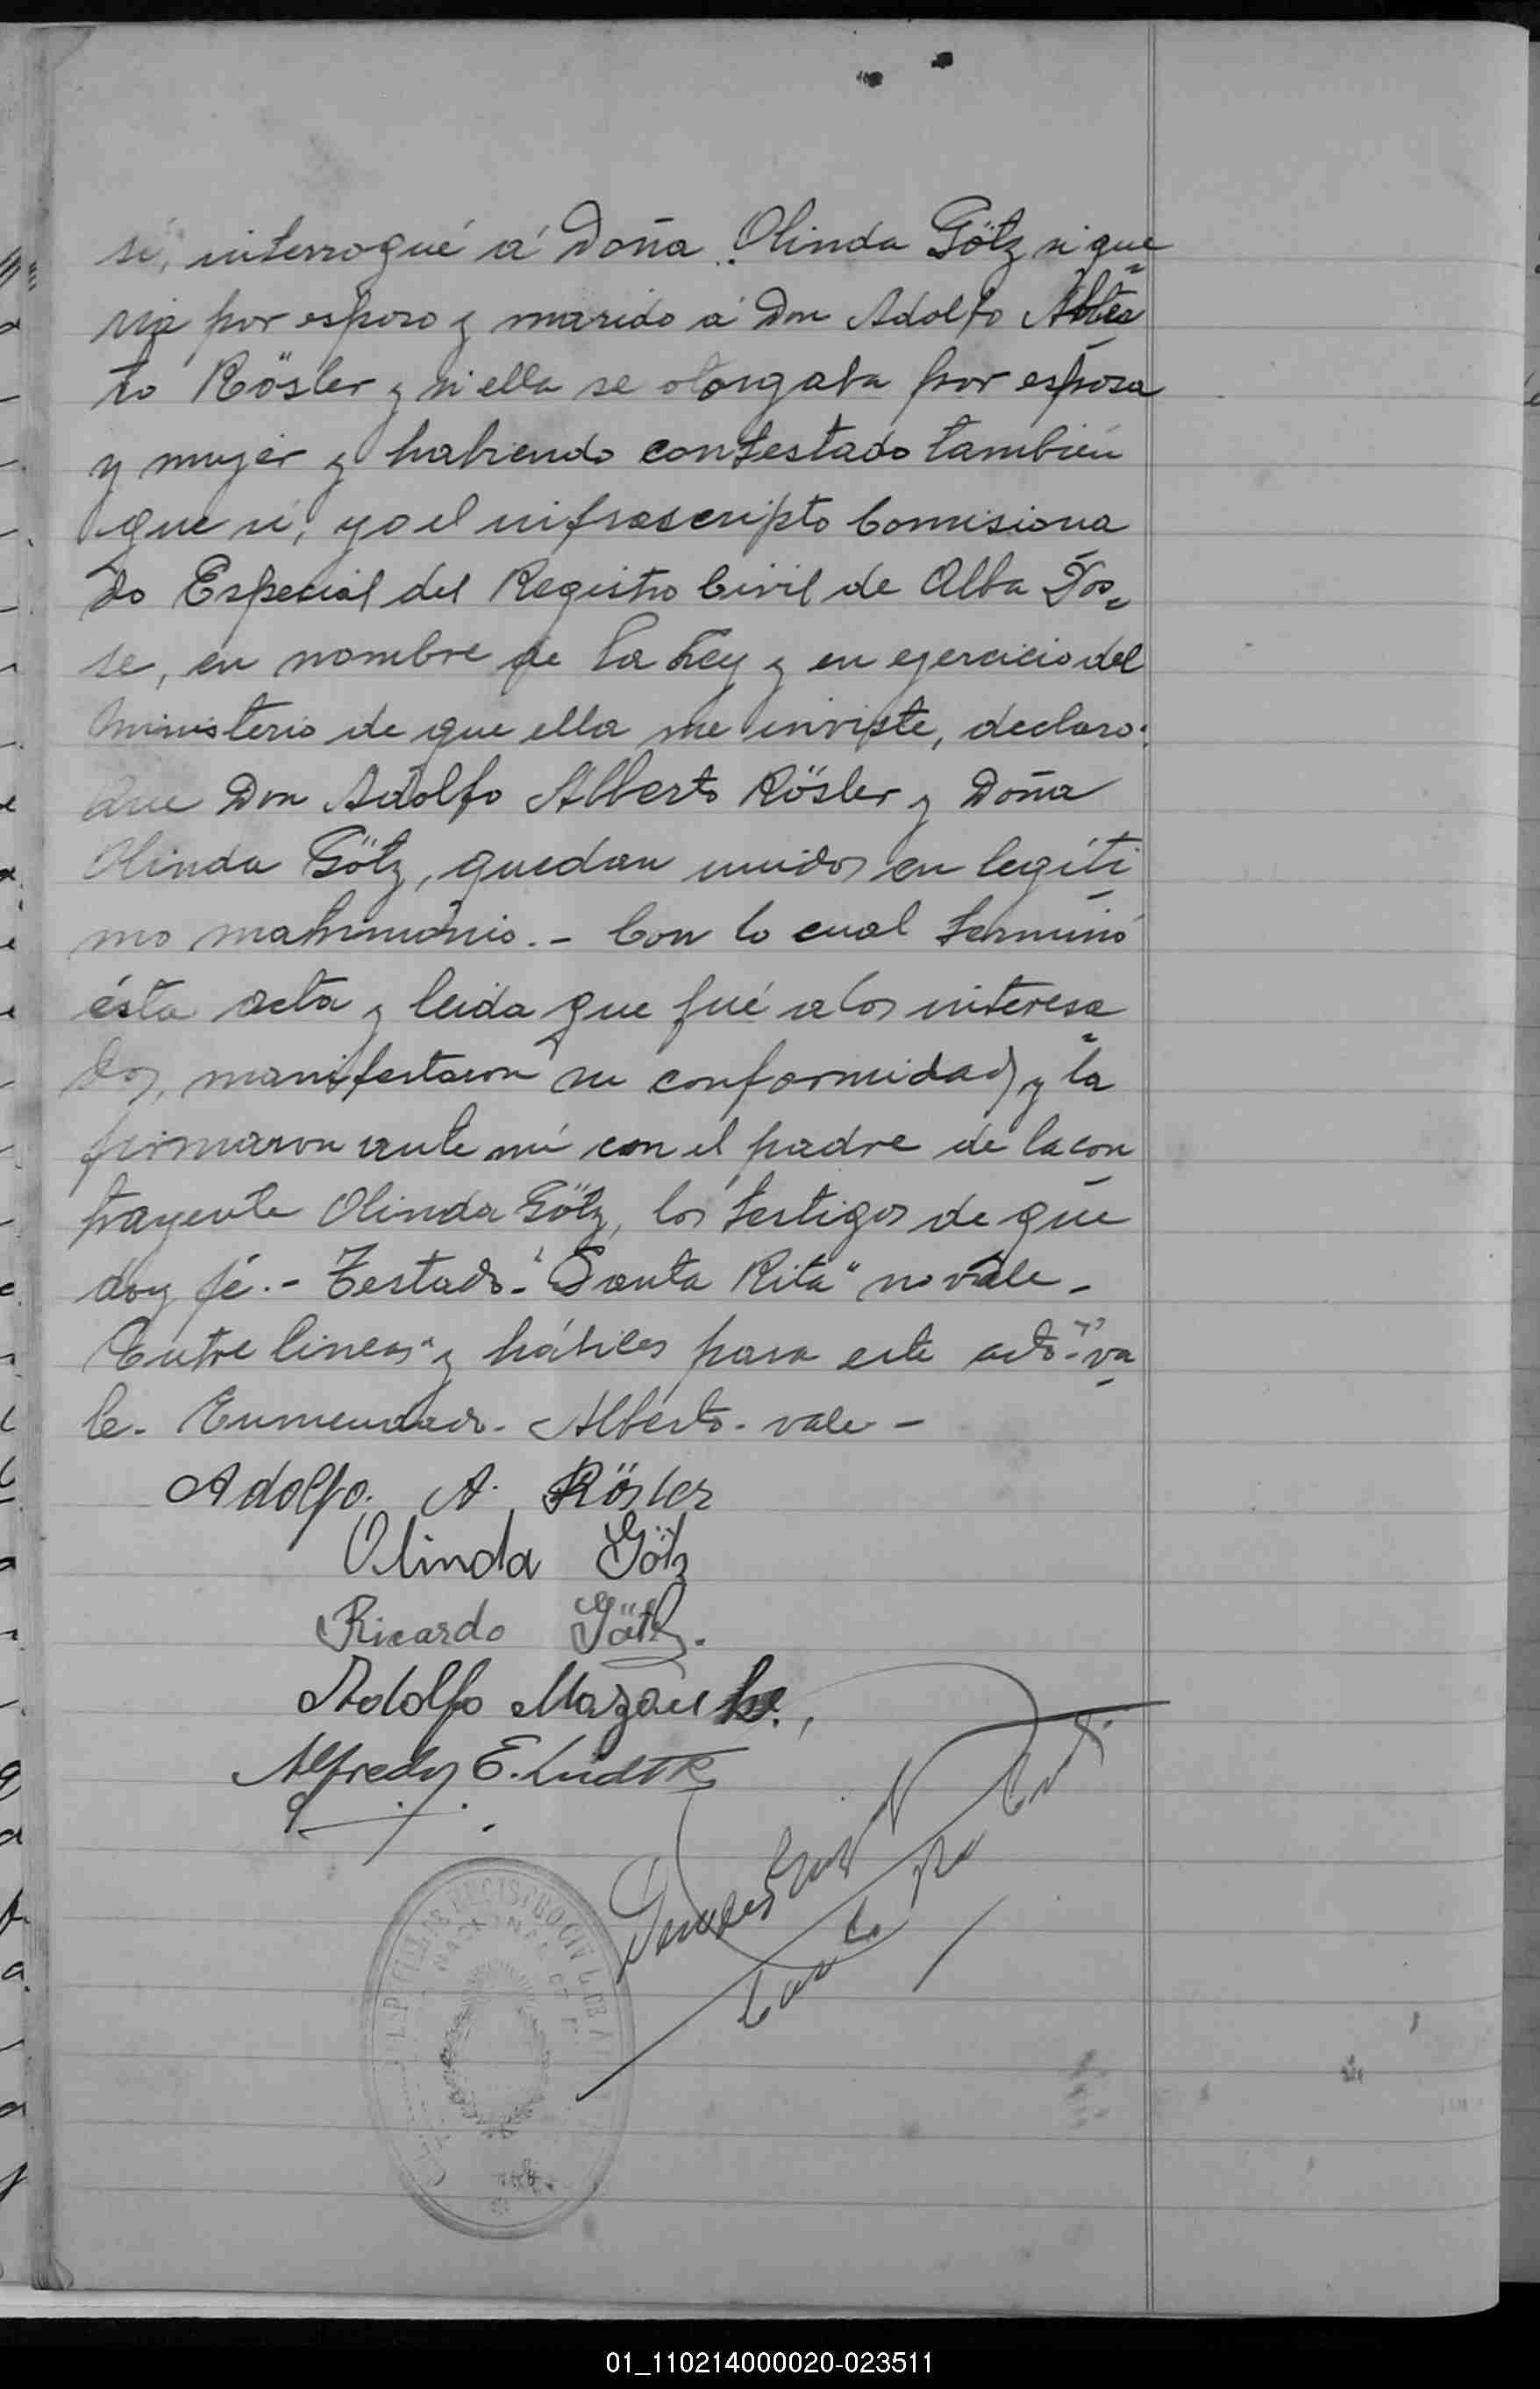 sí, interrogué á Doña Olinda Götz si que=
ria por esposo y marido a Don Adolfo Alber
to Rösler y si ella se otorgaba por esposa
y mujer y habiendo contestado también
que sí, yo el infrascripto Comisiona
do Especial del Registro Civil de Alba Pos=
se, en nombre de la Ley y en ejercicio del
ministerio de que ella me inviste, declaro:
Que Don Adolfo Alberto Rösler y Doña
Olinda Götz, quedan unidos en legíti
mo matrimonio.- Con lo cual terminó
ésta acta y leida que fué a los interesa=
dos, manifestaron su conformidad y la
firmaron ante mí con el padre de la con
trayente Olinda Götz, los testigos de que
doy fé.- Testado-"Santa Rita" no vale-
Entre lineas "y hábiles para este acto"-va
le- Enmendado- Alberto- vale-
Adolfo. A. Rösler
Olinda Götz
Ricardo Götz.
Adolfo
Alfredo E. Ludtke
REGISTRO CIVIL
01_110214000020-023511